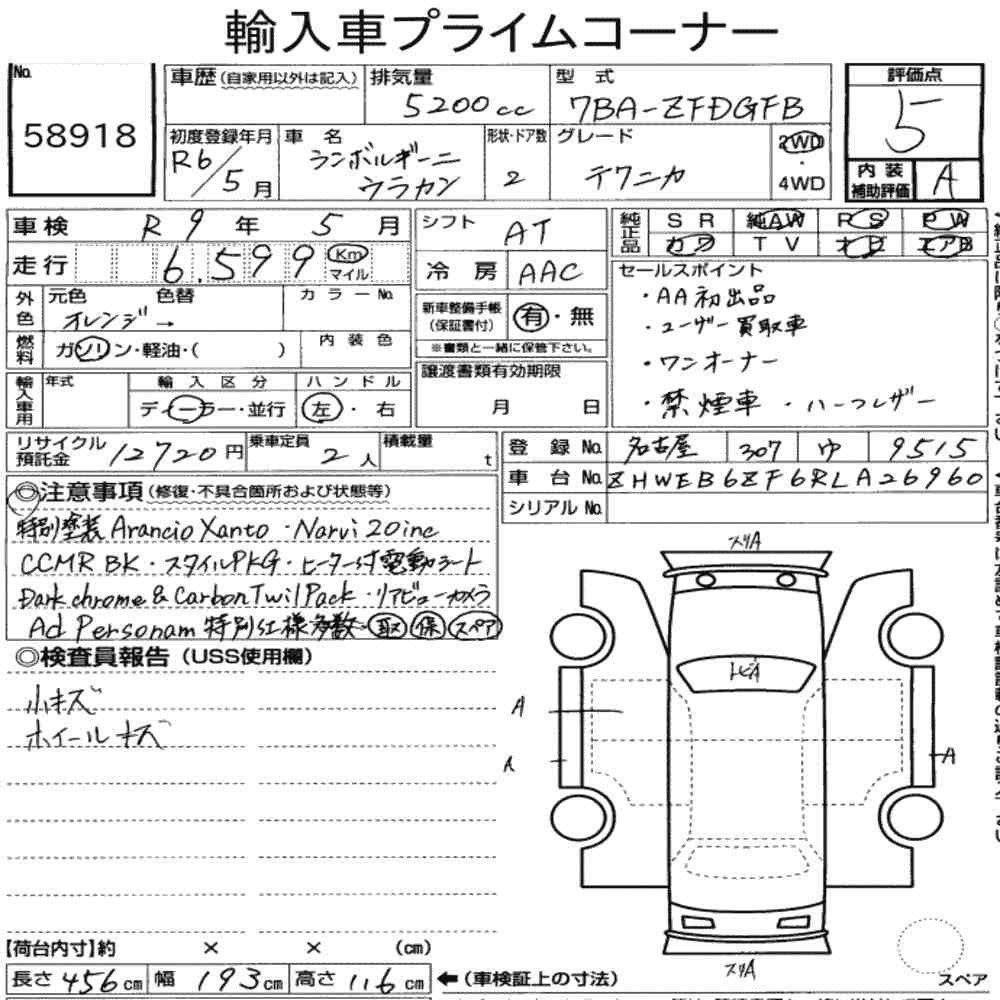 輸入車プライムコーナー
No. 58918
車歴 (自家用以外は記入)
排気量 5200cc
型式 7BA-ZFDGFB
評価点 5
初度登録年月 R6/5月
車名 ランボルギーニ
ウラカン
形状・ドア数 2
グレード テクニカ
2WD・4WD
内装補助評価 A
車検 R9年5月
シフト AT
純正品 SR 純AW PS PW
カワ TV ナビ エアB
走行 6.599 Km マイル
冷房 AAC
外色 元色 色替 カラーNo.
オレンジ→
新車整備手帳(保証書付) 有・無
※書類と一緒に保管下さい。
セールスポイント
・AA初出品
・ユーザー買取車
・ワンオーナー
・禁煙車 ・ハーフレザー
燃料 ガソリン・軽油・( )
内装色
譲渡書類有効期限
月 日
輸入車用 年式 輸入区分 ハンドル
ディーラー・並行 左・右
リサイクル預託金 12720円
乗車定員 2人
積載量 t
登録No. 名古屋 307 ゆ 9515
車台No. ZHWEB6ZF6RLA26960
シリアルNo.
◎注意事項 (修復・不具合箇所および状態等)
特別塗装 Arancio Xanto ・Narvi 20inc
CCMR BK・スタイルPKG・ヒーター付電動シート
Dark chrome & Carbon Twil Pack ・リアビューカメラ
Ad Personam 特別仕様多数 取 保 スペア
◎検査員報告 (USS使用欄)
小キズ
ホイールキズ
スリA
トビA
A
A
A
スリA
【荷台内寸】約 × × (cm)
長さ 456cm 幅 193cm 高さ 116cm
←(車検証上の寸法)
スペア